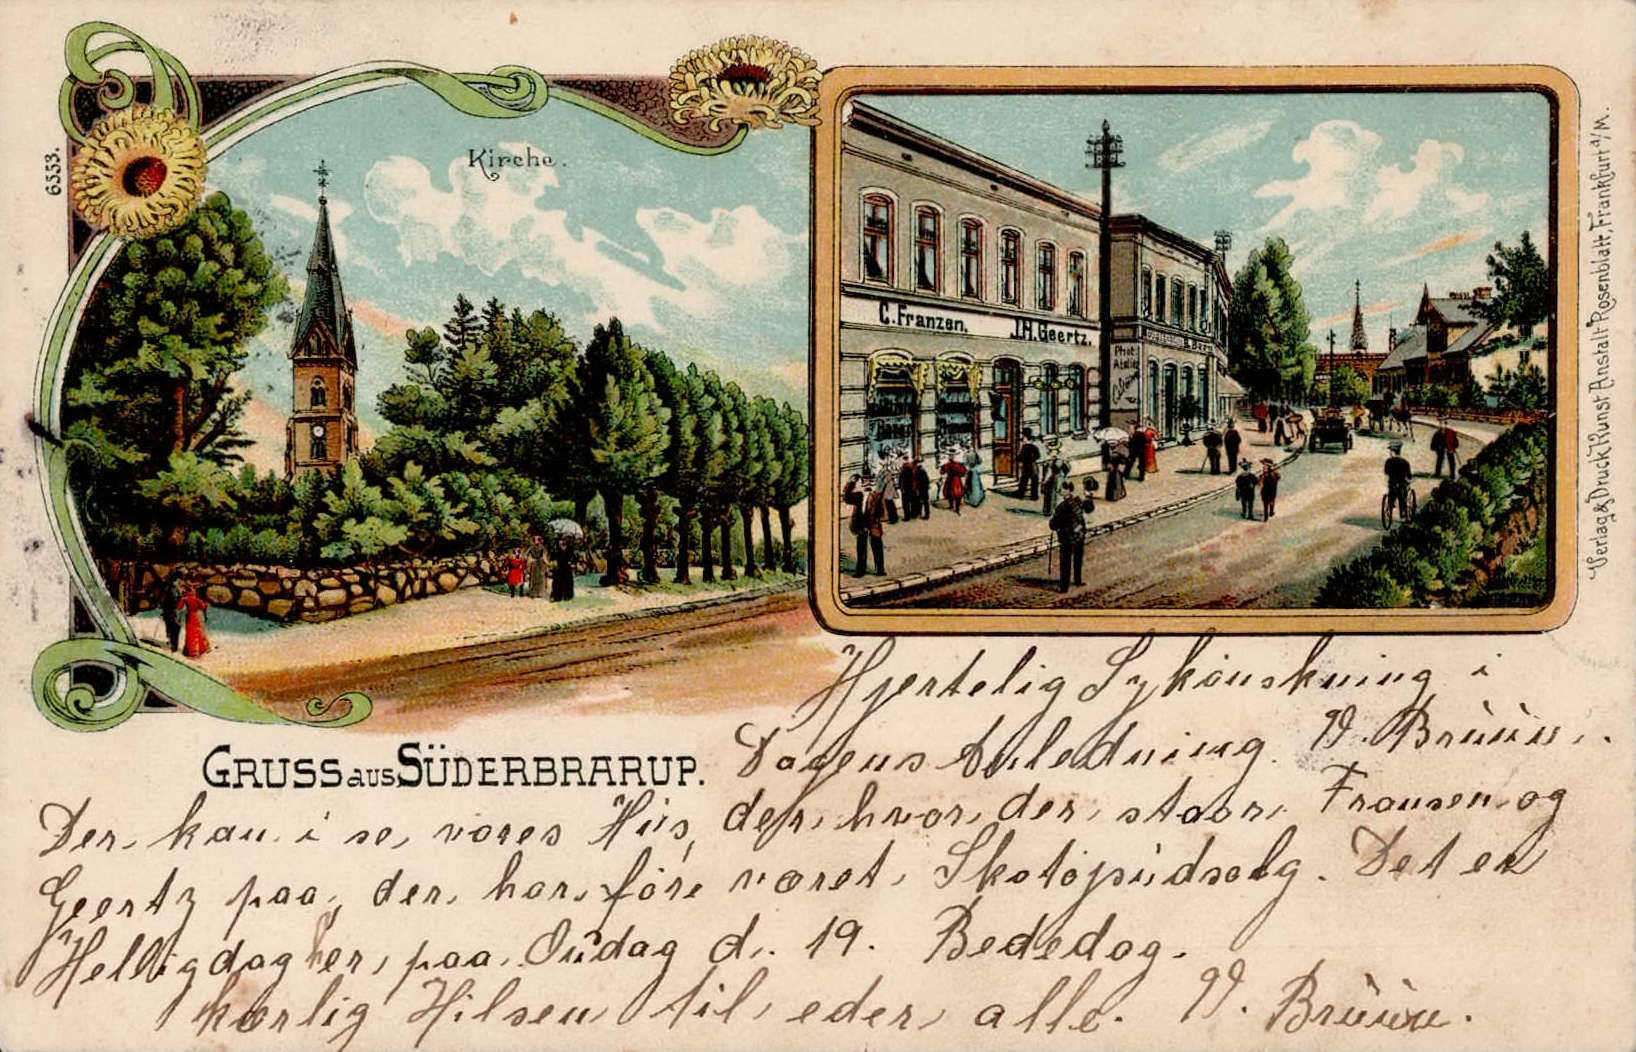 6333.
Kirche.
C. Franzen.
J.H. Geertz.
Phot.
Verlag & Druck Kunst Anstalt Rosenblatt, Frankfurt a/M.
GRUSS aus SÜDERBRARUP.
Hjertelig Lykönskning i
Dagens Anledning. V. Brüün.
Der kan i se, vores Hüs, der, hvor der staar Fransen og
Geertz paa, der har före været Skotöjsüdsalg. Det er
Helligdag her, paa Onsdag d. 19. Bededag.
kærlig Hilsen til eder alle. V. Brüün.